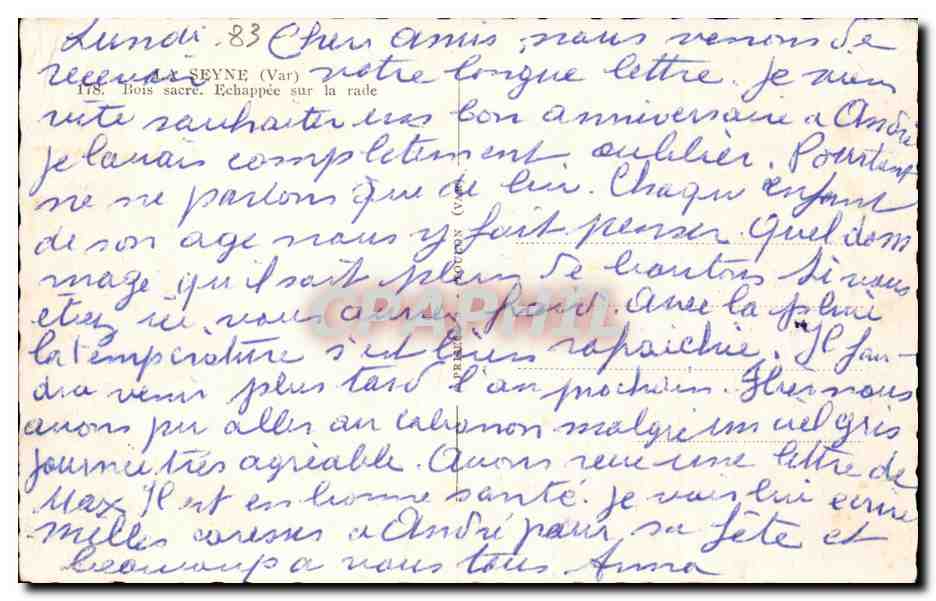 Lundi 83 Chers amis, nous venons de
recevoir votre longue lettre. Je viens
LA SEYNE (Var)
178. Bois sacré. Echappée sur la rade
vite souhaiter un bon anniversaire a André
je l'avais completement oublier. Pourtant
ne ne parlons que de lui. Chaque enfant
de son age nous y fait penser. Quel dom
mage qu'il soit plein de boutons. Si vous
étiez ici, vous auriez froid. Avec la pluie
la température s'est bien rafraichie. Il fau-
dra venir plus tard l'an prochain. Hier nous
avons pu aller au cabanon malgré un ciel gris
journée très agréable. Avons reçu une lettre de
Max. Il est en bonne santé. Je vais lui écrire
milles caresses a André pour sa fête et
beaucoup a vous tous Anna
TOULON (VAR)
CPAPHIL